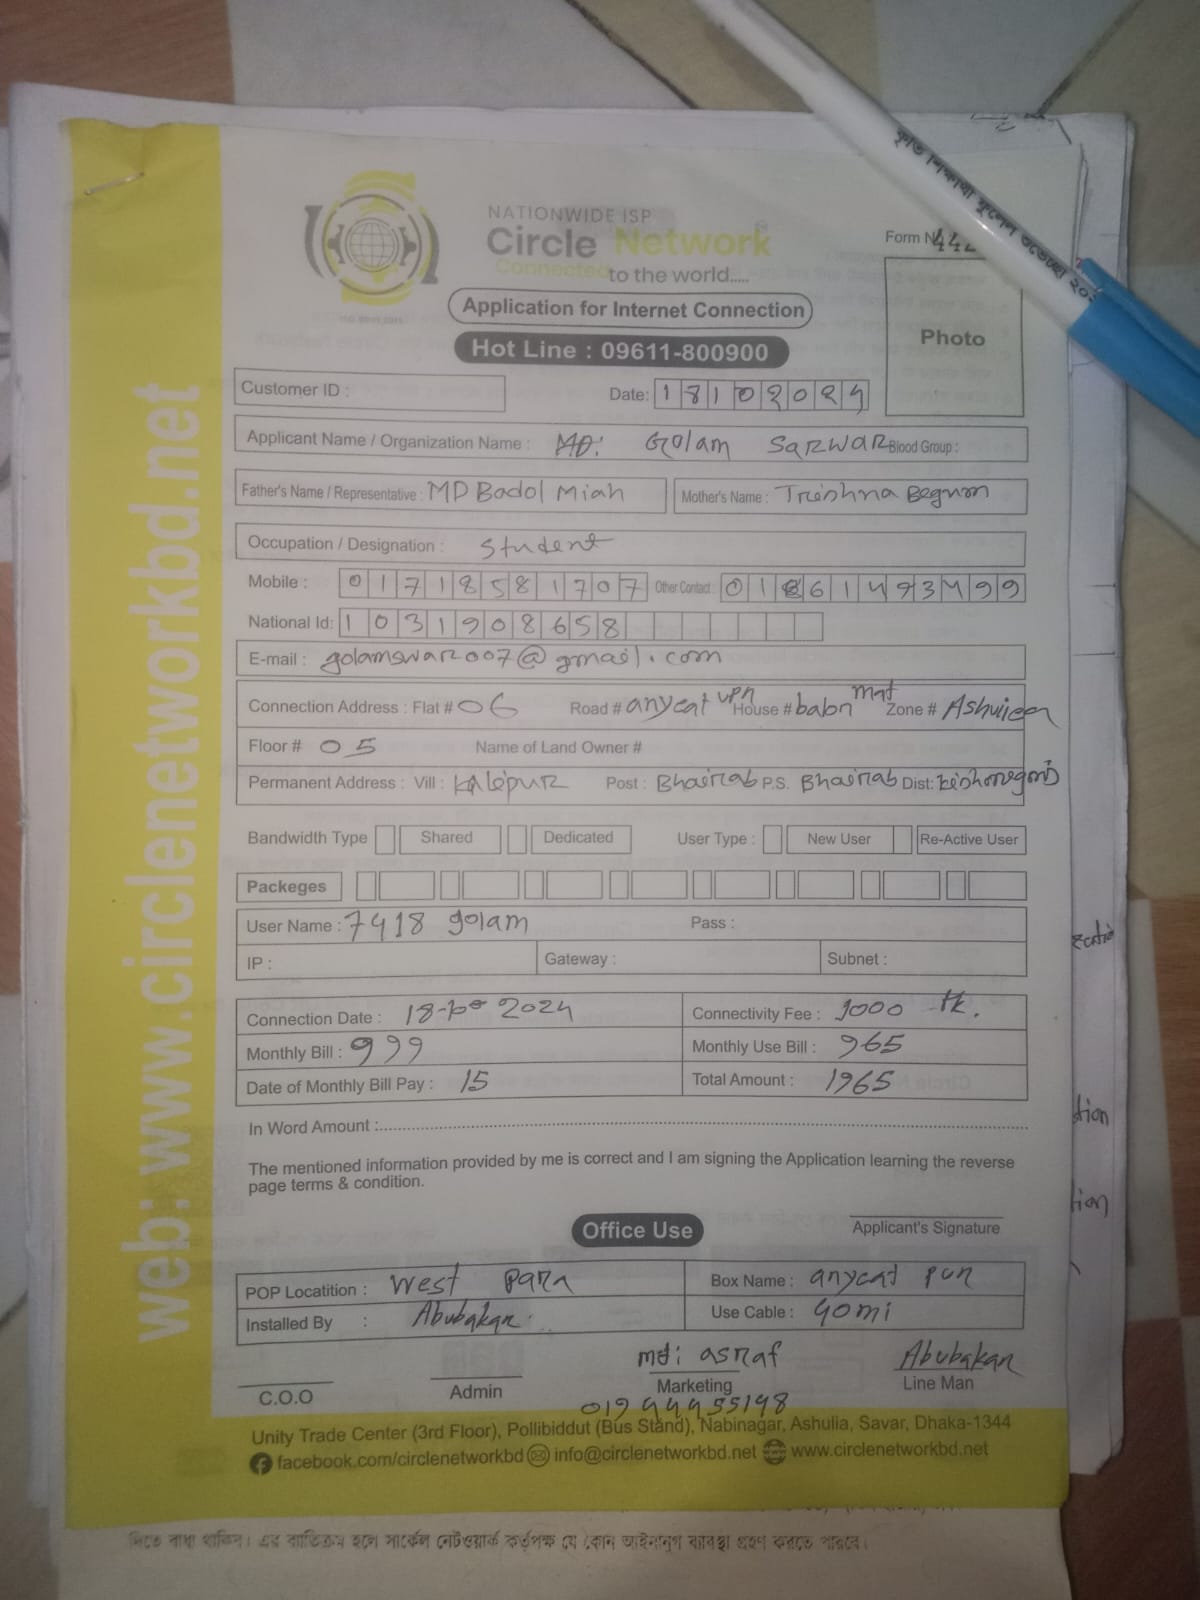 web: www.circlenetworkbd.net
NATIONWIDE ISP
Circle Network
Connected to the world.....
Form N 442
Application for Internet Connection
Hot Line : 09611-800900
Photo
Customer ID :
Date: 18102024
Applicant Name / Organization Name : MD: Golam SARWAR Blood Group :
Father's Name / Representative : MD Badol Miah Mother's Name : Trishna Begum
Occupation / Designation : Student
Mobile : 01718581707 Other Contact : 01861493499
National Id: 1031908658
E-mail : golamswar007@gmail.com
Connection Address : Flat # 06 Road # anycat House # babn Zone #
Floor # 05 Name of Land Owner #
Permanent Address : Vill : Kalipur Post : Bhairab P.S. Bhairab Dist:
Bandwidth Type Shared Dedicated User Type : New User Re-Active User
Packeges
User Name : 7418 golam Pass :
IP : Gateway : Subnet :
Connection Date : 18-10 2024 Connectivity Fee : 1000 tk.
Monthly Bill : 999 Monthly Use Bill : 965
Date of Monthly Bill Pay : 15 Total Amount : 1965
In Word Amount :
The mentioned information provided by me is correct and I am signing the Application learning the reverse
page terms & condition.
Office Use
Applicant's Signature
POP Locatition : West para Box Name : anycat
Installed By : Abubakar Use Cable : 40mi
md: asraf Abubakar
C.O.O Admin Marketing Line Man
01944455198
Unity Trade Center (3rd Floor), Pollibiddut (Bus Stand), Nabinagar, Ashulia, Savar, Dhaka-1344
facebook.com/circlenetworkbd info@circlenetworkbd.net www.circlenetworkbd.net
দিতে বাধ্য থাকিব। এর ব্যতিক্রম হলে সার্কেল নেটওয়ার্ক কর্তৃপক্ষ যে কোন আইনানুগ ব্যবস্থা গ্রহণ করতে পারবে।